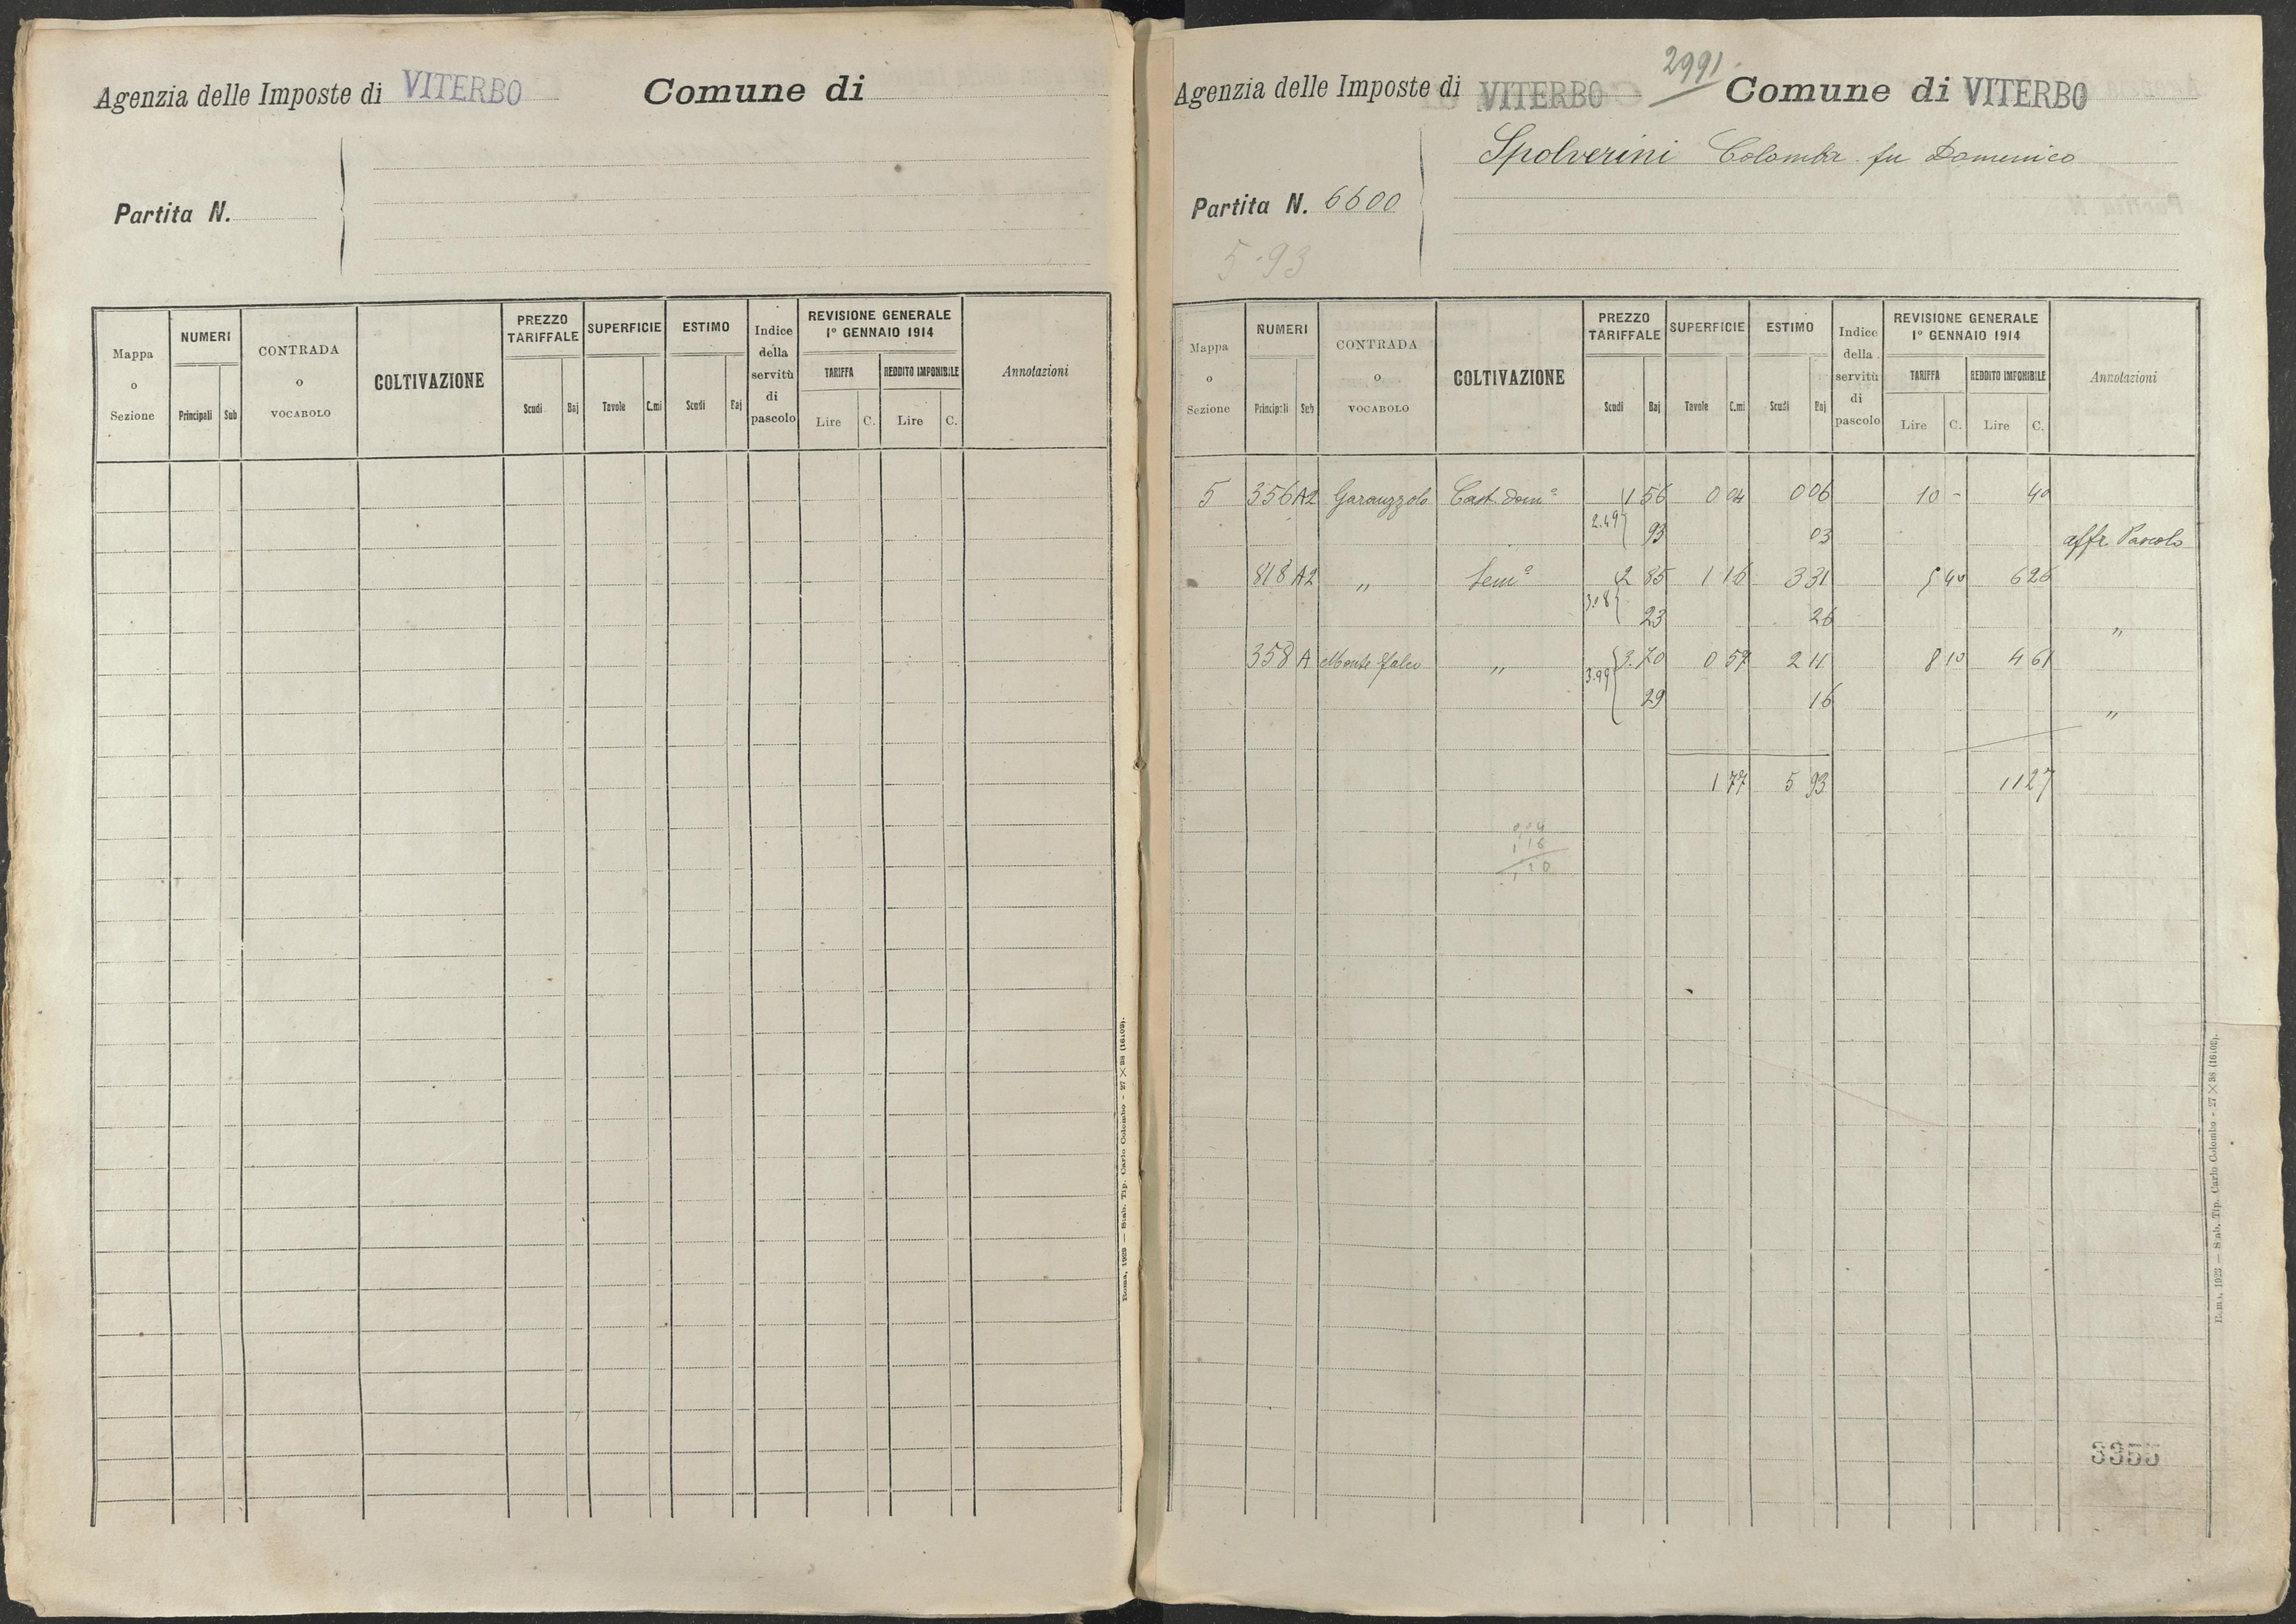 Agenzia delle Imposte di VITERBO Comune di
Partita N.
Mappa o Sezione NUMERI Principali Sub CONTRADA o VOCABOLO COLTIVAZIONE PREZZO TARIFFALE Scudi Baj SUPERFICIE Tavole C.mi ESTIMO Scudi Baj Indice della servitù di pascolo REVISIONE GENERALE 1º GENNAIO 1914 TARIFFA Lire C. REDDITO IMPONIBILE Lire C. Annotazioni
Roma, 1923 — Stab. Tip. Carlo Colombo - 27 × 38 (16103).
2991
Agenzia delle Imposte di VITERBO Comune di VITERBO
Spolverini Colomba fu Domenico
Partita N. 6600
5.93
Mappa o Sezione NUMERI Principali Sub CONTRADA o VOCABOLO COLTIVAZIONE PREZZO TARIFFALE Scudi Baj SUPERFICIE Tavole C.mi ESTIMO Scudi Baj Indice della servitù di pascolo REVISIONE GENERALE 1º GENNAIO 1914 TARIFFA Lire C. REDDITO IMPONIBILE Lire C. Annotazioni
5 356 A2 Garauzzolo Cast. domº 1 56 0 04 0 06 10 - 40
2.49 93 03 affr. Pascolo
818 A2 " Semº 2 85 1 16 3 31 5 40 6 26
3.08 23 26 "
358 A Monte Falco " 3.70 0 57 2 11 8 10 4 61
3.99 29 16 "
1 77 5 93 11 27
0,04
1 16
1 20
3355
Roma, 1923 — Stab. Tip. Carlo Colombo - 27 × 38 (16103).